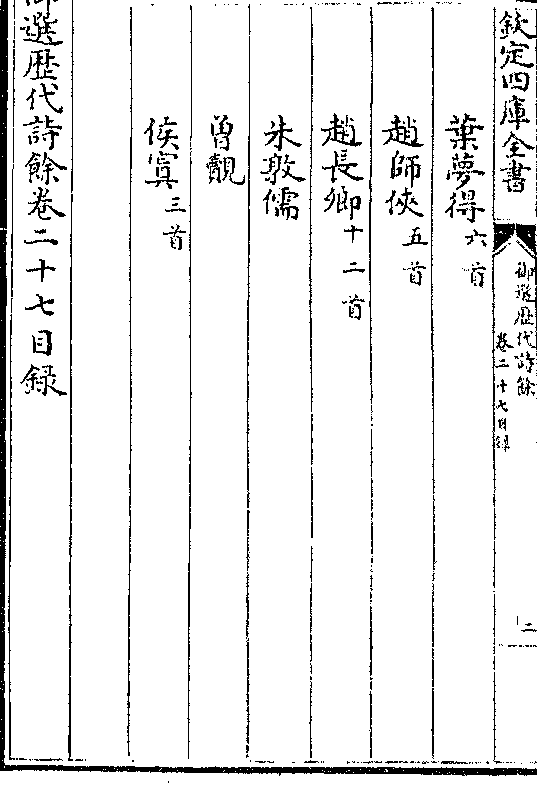 欽定四庫全書
御選歷代詩餘
卷二十七目録
二
葉夢得六首
趙師俠五首
趙長卿十二首
朱敦儒
曾覿
侯寘三首
御選歷代詩餘卷二十七目録